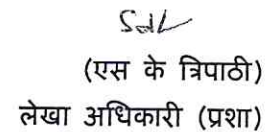 Sd/-
(एस के त्रिपाठी)
लेखा अधिकारी (प्रशा)